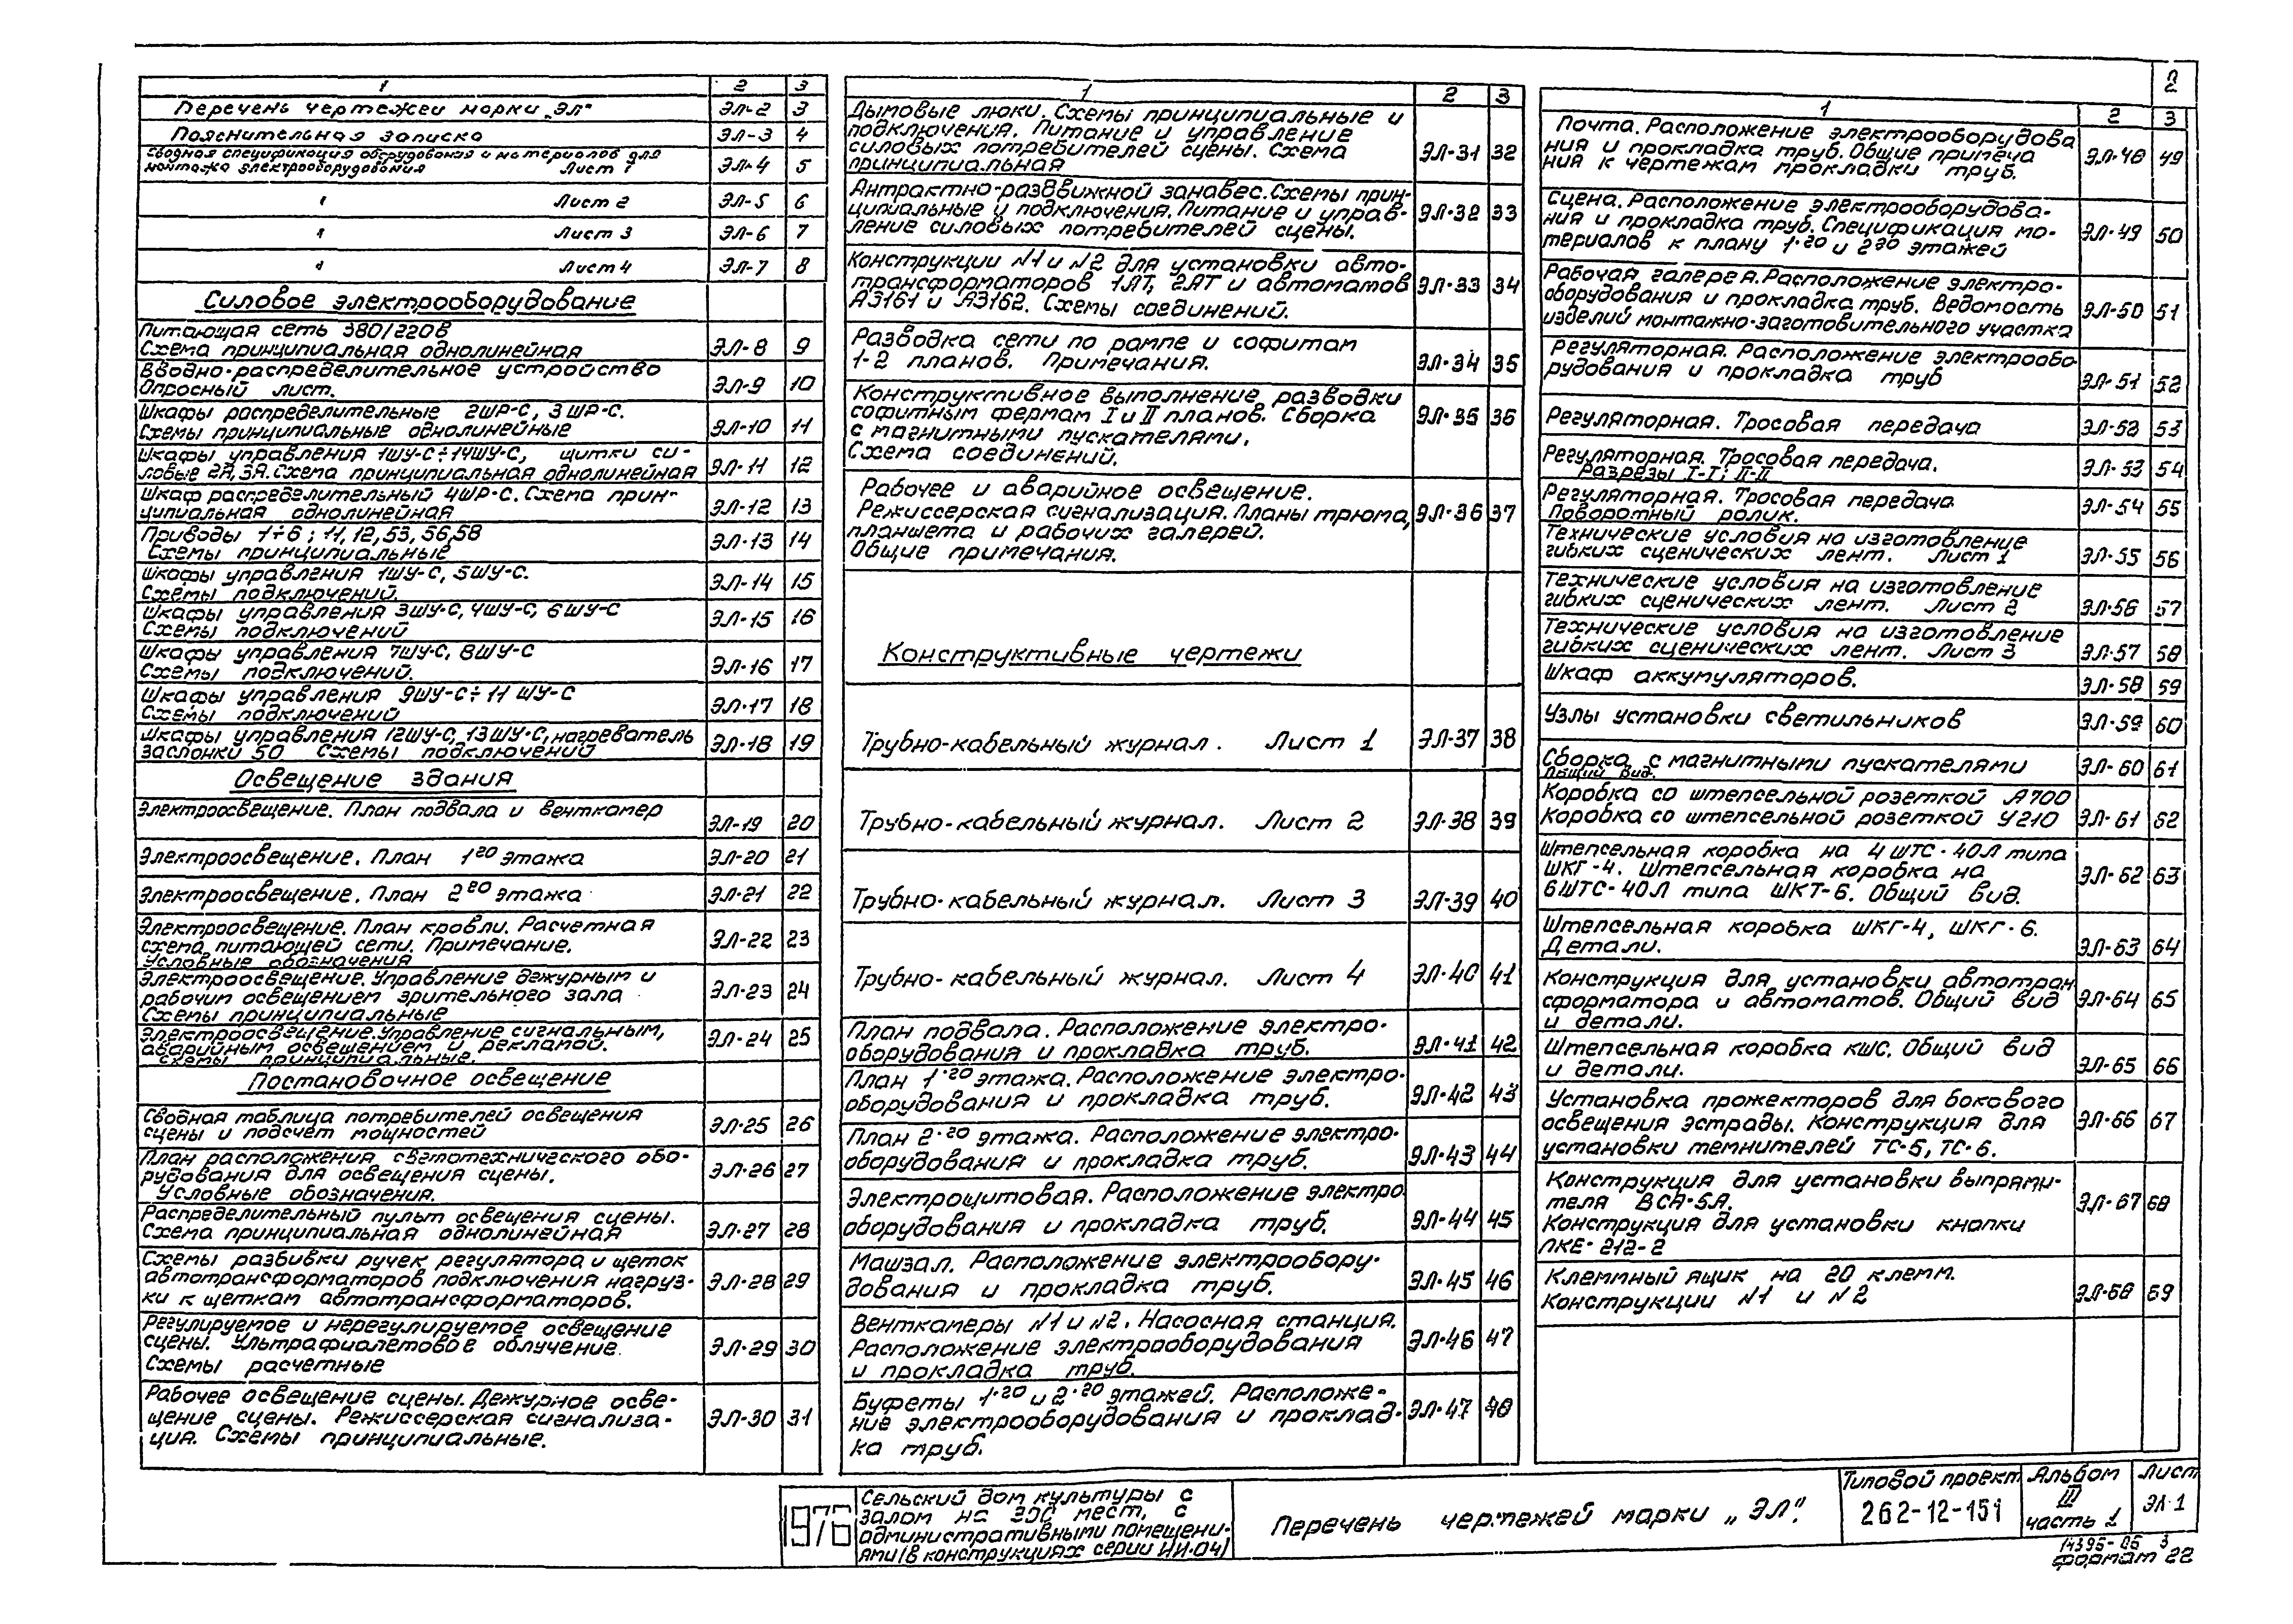 2
1 2 3
Перечень чертежей марки „ЭЛ“ ЭЛ-2 3
Пояснительная записка ЭЛ-3 4
Сводная спецификация оборудования и материалов для
монтажа электрооборудования Лист 1 ЭЛ-4 5
" Лист 2 ЭЛ-5 6
" Лист 3 ЭЛ-6 7
" Лист 4 ЭЛ-7 8
Силовое электрооборудование
Питающая сеть 380/220В
Схема принципиальная однолинейная ЭЛ-8 9
Вводно-распределительное устройство
Опросный лист. ЭЛ-9 10
Шкафы распределительные 2ШР-С, 3ШР-С.
Схемы принципиальные однолинейные ЭЛ-10 11
Шкафы управления 1ШУ-С÷14ШУ-С, щитки си-
ловые 2Я,3Я. Схема принципиальная однолинейная ЭЛ-11 12
Шкаф распределительный 4ШР-С. Схема прин-
ципиальная однолинейная ЭЛ-12 13
Приводы 1÷6; 11,12,53,56,58
Схемы принципиальные ЭЛ-13 14
Шкафы управления 1ШУ-С, 5ШУ-С.
Схемы подключений. ЭЛ-14 15
Шкафы управления 3ШУ-С, 4ШУ-С, 6ШУ-С
Схемы подключений ЭЛ-15 16
Шкафы управления 7ШУ-С, 8ШУ-С
Схемы подключений. ЭЛ-16 17
Шкафы управления 9ШУ-С÷11ШУ-С
Схемы подключений ЭЛ-17 18
Шкафы управления 12ШУ-С, 13ШУ-С, нагреватель
заслонки 50 Схемы подключений ЭЛ-18 19
Освещение здания
Электроосвещение. План подвала и венткамер ЭЛ-19 20
Электроосвещение. План 1го этажа ЭЛ-20 21
Электроосвещение. План 2го этажа ЭЛ-21 22
Электроосвещение. План кровли. Расчетная
схема питающей сети. Примечание.
Условные обозначения ЭЛ-22 23
Электроосвещение. Управление дежурным и
рабочим освещением зрительного зала
Схемы принципиальные ЭЛ-23 24
Электроосвещение. Управление сигнальным,
аварийным освещением и рекламой.
Схемы принципиальные. ЭЛ-24 25
Постановочное освещение
Сводная таблица потребителей освещения
сцены и подсчет мощностей ЭЛ-25 26
План расположения светотехнического обо-
рудования для освещения сцены.
Условные обозначения. ЭЛ-26 27
Распределительный пульт освещения сцены.
Схема принципиальная однолинейная ЭЛ-27 28
Схемы разбивки ручек регулятора и щеток
автотрансформаторов подключения нагруз-
ки к щеткам автотрансформаторов. ЭЛ-28 29
Регулируемое и нерегулируемое освещение
сцены. Ультрафиолетовое облучение.
Схемы расчетные ЭЛ-29 30
Рабочее освещение сцены. Дежурное осве-
щение сцены. Режиссерская сигнализа-
ция. Схемы принципиальные. ЭЛ-30 31
1 2 3
Дымовые люки. Схемы принципиальные и
подключения. Питание и управление
силовых потребителей сцены. Схема
принципиальная ЭЛ-31 32
Антрактно-раздвижной занавес. Схемы прин-
ципиальные и подключения. Питание и управ-
ление силовых потребителей сцены. ЭЛ-32 33
Конструкции №1 и №2 для установки авто-
трансформаторов 1АТ, 2АТ и автоматов
А3161 и А3162. Схемы соединений. ЭЛ-33 34
Разводка сети по рампе и софитам
1-2 планов. Примечания. ЭЛ-34 35
Конструктивное выполнение разводки
софитным фермам I и II планов. Сборка
с магнитными пускателями.
Схема соединений. ЭЛ-35 36
Рабочее и аварийное освещение.
Режиссерская сигнализация. Планы трюма,
планшета и рабочих галерей.
Общие примечания. ЭЛ-36 37
Конструктивные чертежи
Трубно-кабельный журнал. Лист 1 ЭЛ-37 38
Трубно-кабельный журнал. Лист 2 ЭЛ-38 39
Трубно-кабельный журнал. Лист 3 ЭЛ-39 40
Трубно-кабельный журнал. Лист 4 ЭЛ-40 41
План подвала. Расположение электро-
оборудования и прокладка труб. ЭЛ-41 42
План 1-го этажа. Расположение электро-
оборудования и прокладка труб. ЭЛ-42 43
План 2-го этажа. Расположение электро-
оборудования и прокладка труб. ЭЛ-43 44
Электрощитовая. Расположение электро
оборудования и прокладка труб. ЭЛ-44 45
Машзал. Расположение электрообору-
дования и прокладка труб. ЭЛ-45 46
Венткамеры №1 и №2. Насосная станция.
Расположение электрооборудования
и прокладка труб. ЭЛ-46 47
Буфеты 1-го и 2-го этажей. Расположе-
ние электрооборудования и проклад-
ка труб. ЭЛ-47 48
1 2 3
Почта. Расположение электрооборудова
ния и прокладка труб. Общие примеча
ния к чертежам прокладки труб. ЭЛ-48 49
Сцена. Расположение электрооборудова-
ния и прокладка труб. Спецификация ма-
териалов к плану 1-го и 2го этажей ЭЛ-49 50
Рабочая галерея. Расположение электро-
оборудования и прокладка труб. Ведомость
изделий монтажно-заготовительного участка ЭЛ-50 51
Регуляторная. Расположение электрообо
рудования и прокладка труб ЭЛ-51 52
Регуляторная. Тросовая передача ЭЛ-52 53
Регуляторная. Тросовая передача.
Разрезы I-I; II-II ЭЛ-53 54
Регуляторная. Тросовая передача.
Поворотный ролик. ЭЛ-54 55
Технические условия на изготовление
гибких сценических лент. Лист 1 ЭЛ-55 56
Технические условия на изготовление
гибких сценических лент. Лист 2 ЭЛ-56 57
Технические условия на изготовление
гибких сценических лент. Лист 3 ЭЛ-57 58
Шкаф аккумуляторов. ЭЛ-58 59
Узлы установки светильников ЭЛ-59 60
Сборка с магнитными пускателями
Общий вид. ЭЛ-60 61
Коробка со штепсельной розеткой А700
Коробка со штепсельной розеткой У210 ЭЛ-61 62
Штепсельная коробка на 4ШТС-40Л типа
ШКГ-4. Штепсельная коробка на
6ШТС-40Л типа ШКТ-6. Общий вид. ЭЛ-62 63
Штепсельная коробка ШКГ-4, ШКГ-6.
Детали. ЭЛ-63 64
Конструкция для установки автотран
сформатора и автоматов. Общий вид
и детали. ЭЛ-64 65
Штепсельная коробка КШС. Общий вид
и детали. ЭЛ-65 66
Установка прожекторов для бокового
освещения эстрады. Конструкция для
установки темнителей ТС-5, ТС-6. ЭЛ-66 67
Конструкция для установки выпрями-
теля ВСА-5А.
Конструкция для установки кнопки
ПКЕ-212-2 ЭЛ-67 68
Клеммный ящик на 20 клемм.
Конструкции №1 и №2 ЭЛ-68 69
1976
Сельский дом культуры с
залом на 300 мест, с
административными помещени-
ями (в конструкциях серии ИИ-04)
Перечень чертежей марки „ЭЛ“.
Типовой проект
262-12-151
Альбом
III
часть 1
Лист
ЭЛ-1
14395-06 3
формат 22